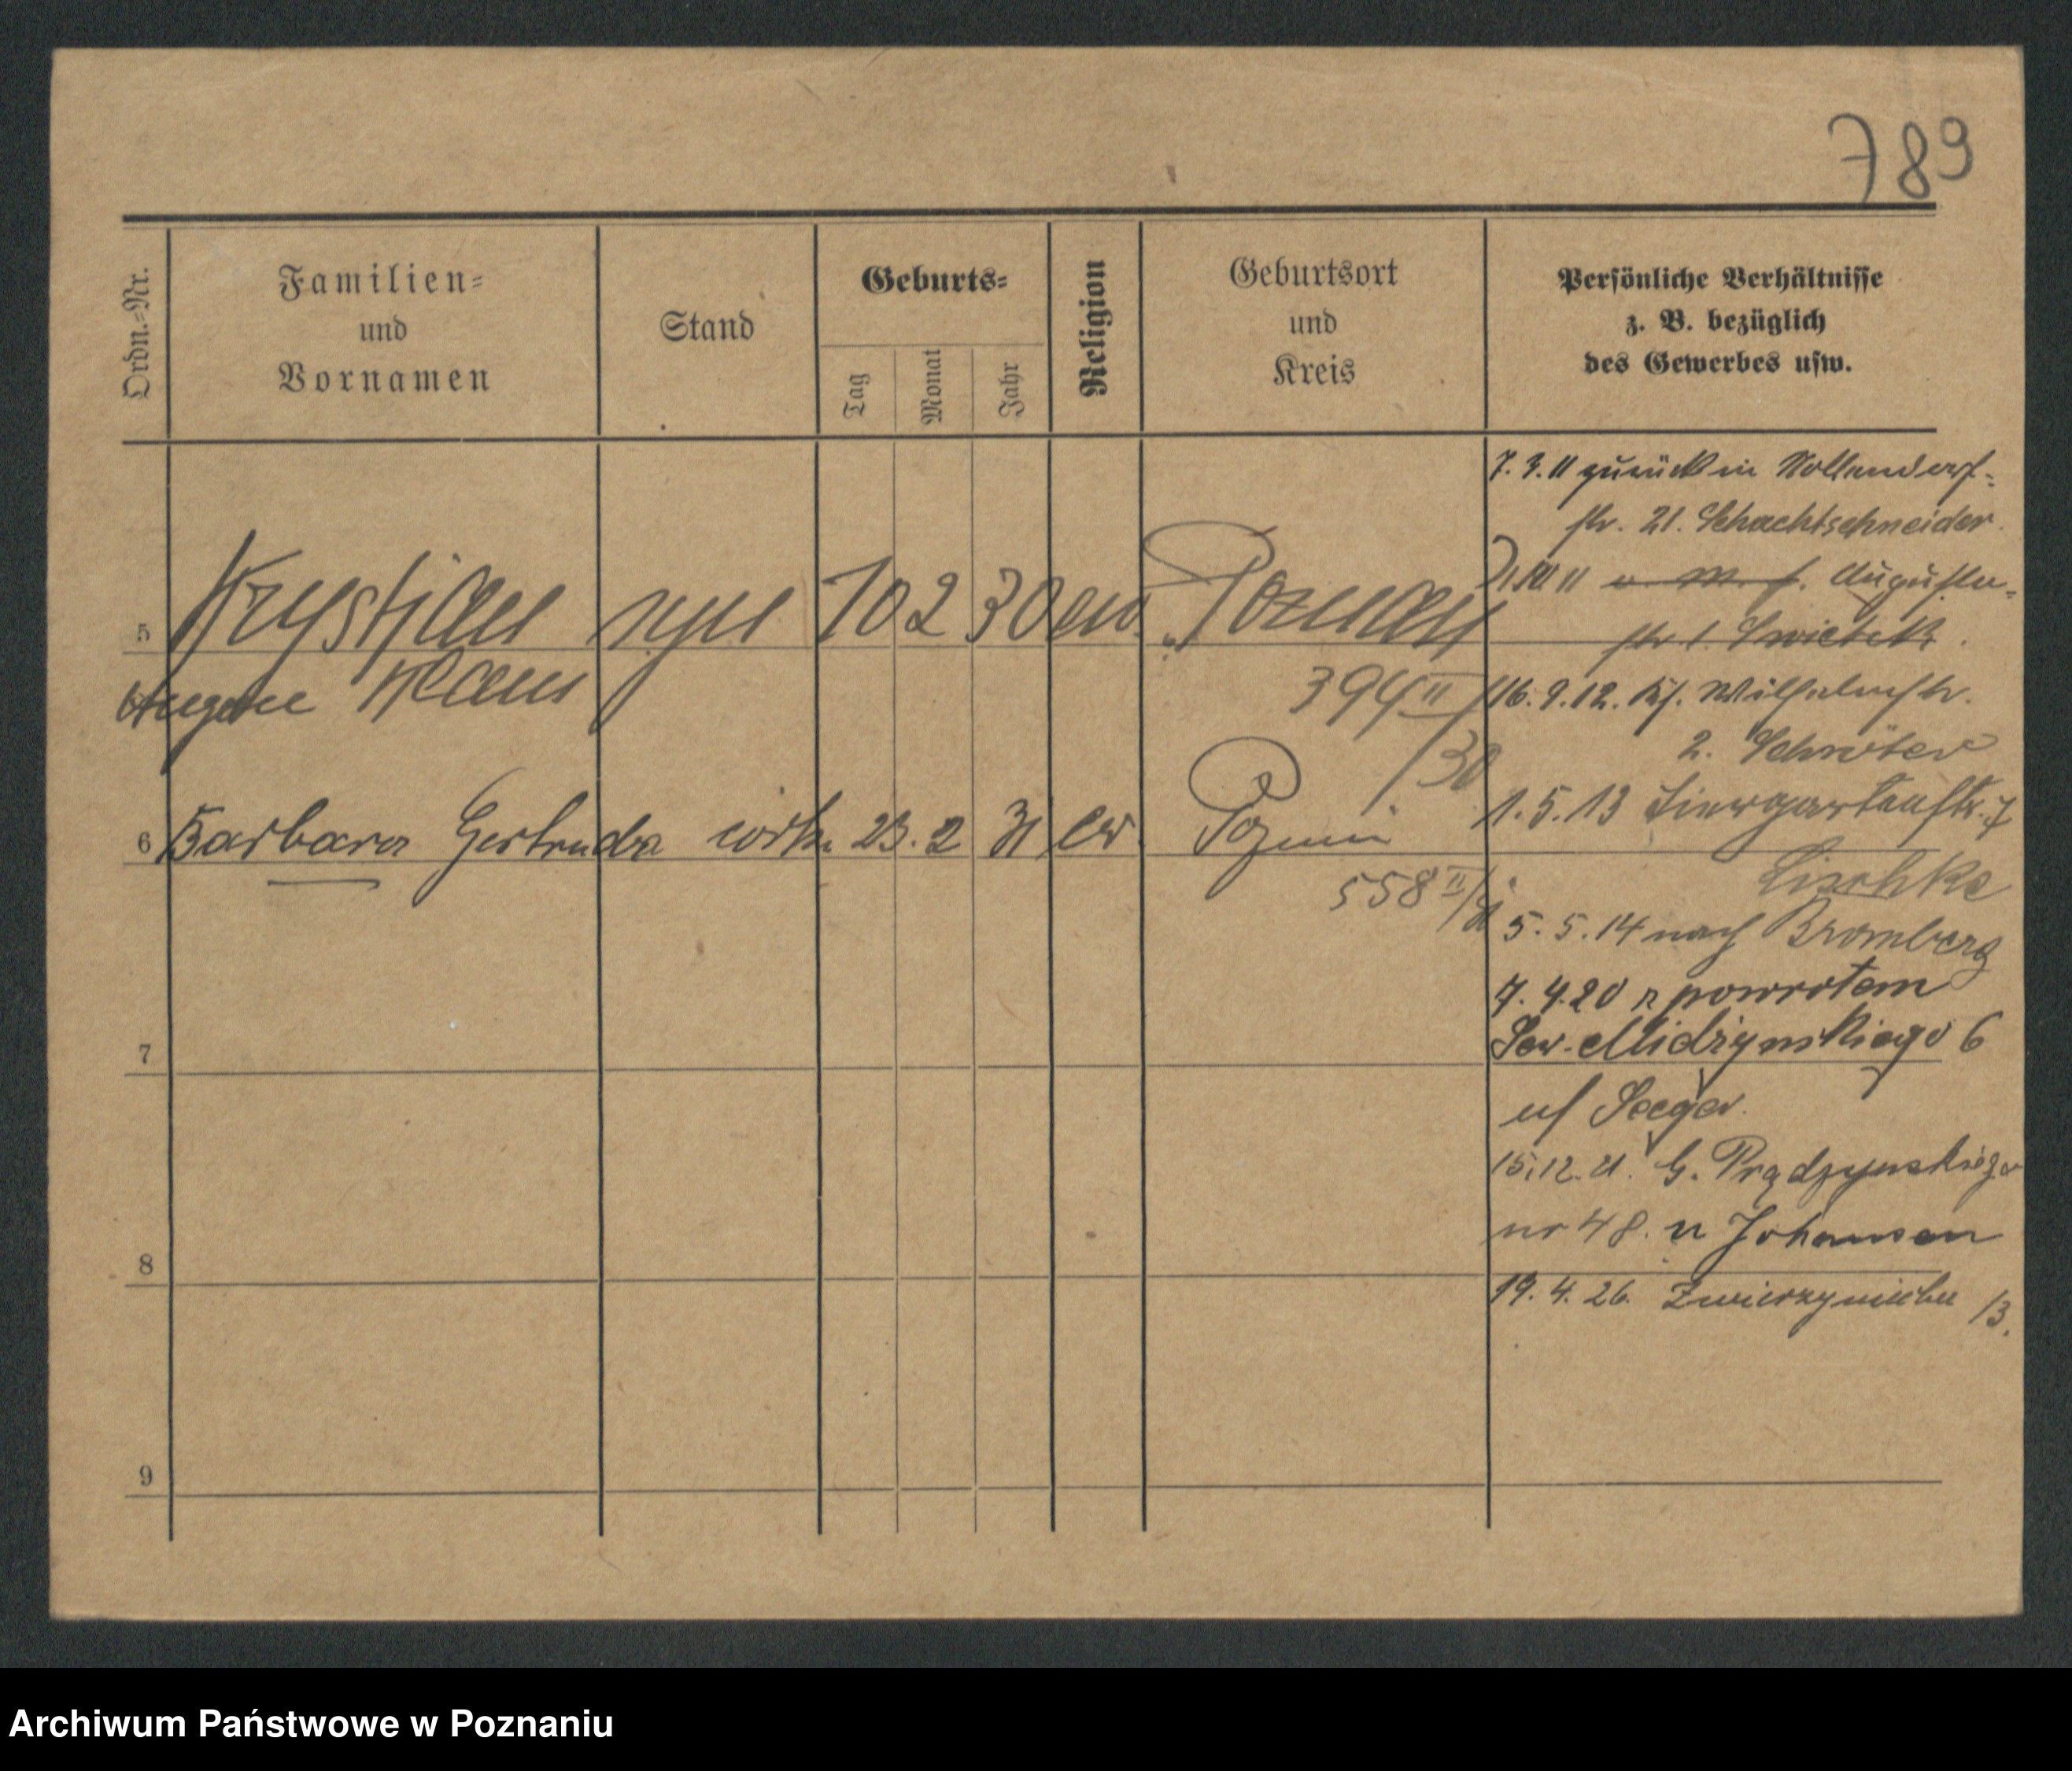 789
Ordn.-Nr.
Familien-
und
Vornamen
Stand
Geburts-
Tag
Monat
Jahr
Religion
Geburtsort
und
Kreis
Persönliche Verhältnisse
z. B. bezüglich
des Gewerbes usw.
5 Krystjan syn 10 2 30 ew. Poznań
Eugen Klaus
394 II/30
6 Barbara Gertruda córka 23. 2 31 ew. Poznań
558 II/31
7
8
9
7. 3. 11 zurück in Nollendorf-
str. 21. Schachtschneider.
11 v. M. f. Augusta-
str 1. Swietek.
16. 9. 12. Wilhelmstr.
2. Schröter
1. 5. 13 Tiergartenstr. 7
Lischke
5. 5. 14 nach Bromberg
7. 4. 20 z powrotem
Sew. Mielżynskiego 6
u/ Seeger.
15. 12. 21. G. Prądzynskiego
nr 48. u Johansen
19. 4. 26. Zwierzyniecka 13.
Archiwum Państwowe w Poznaniu